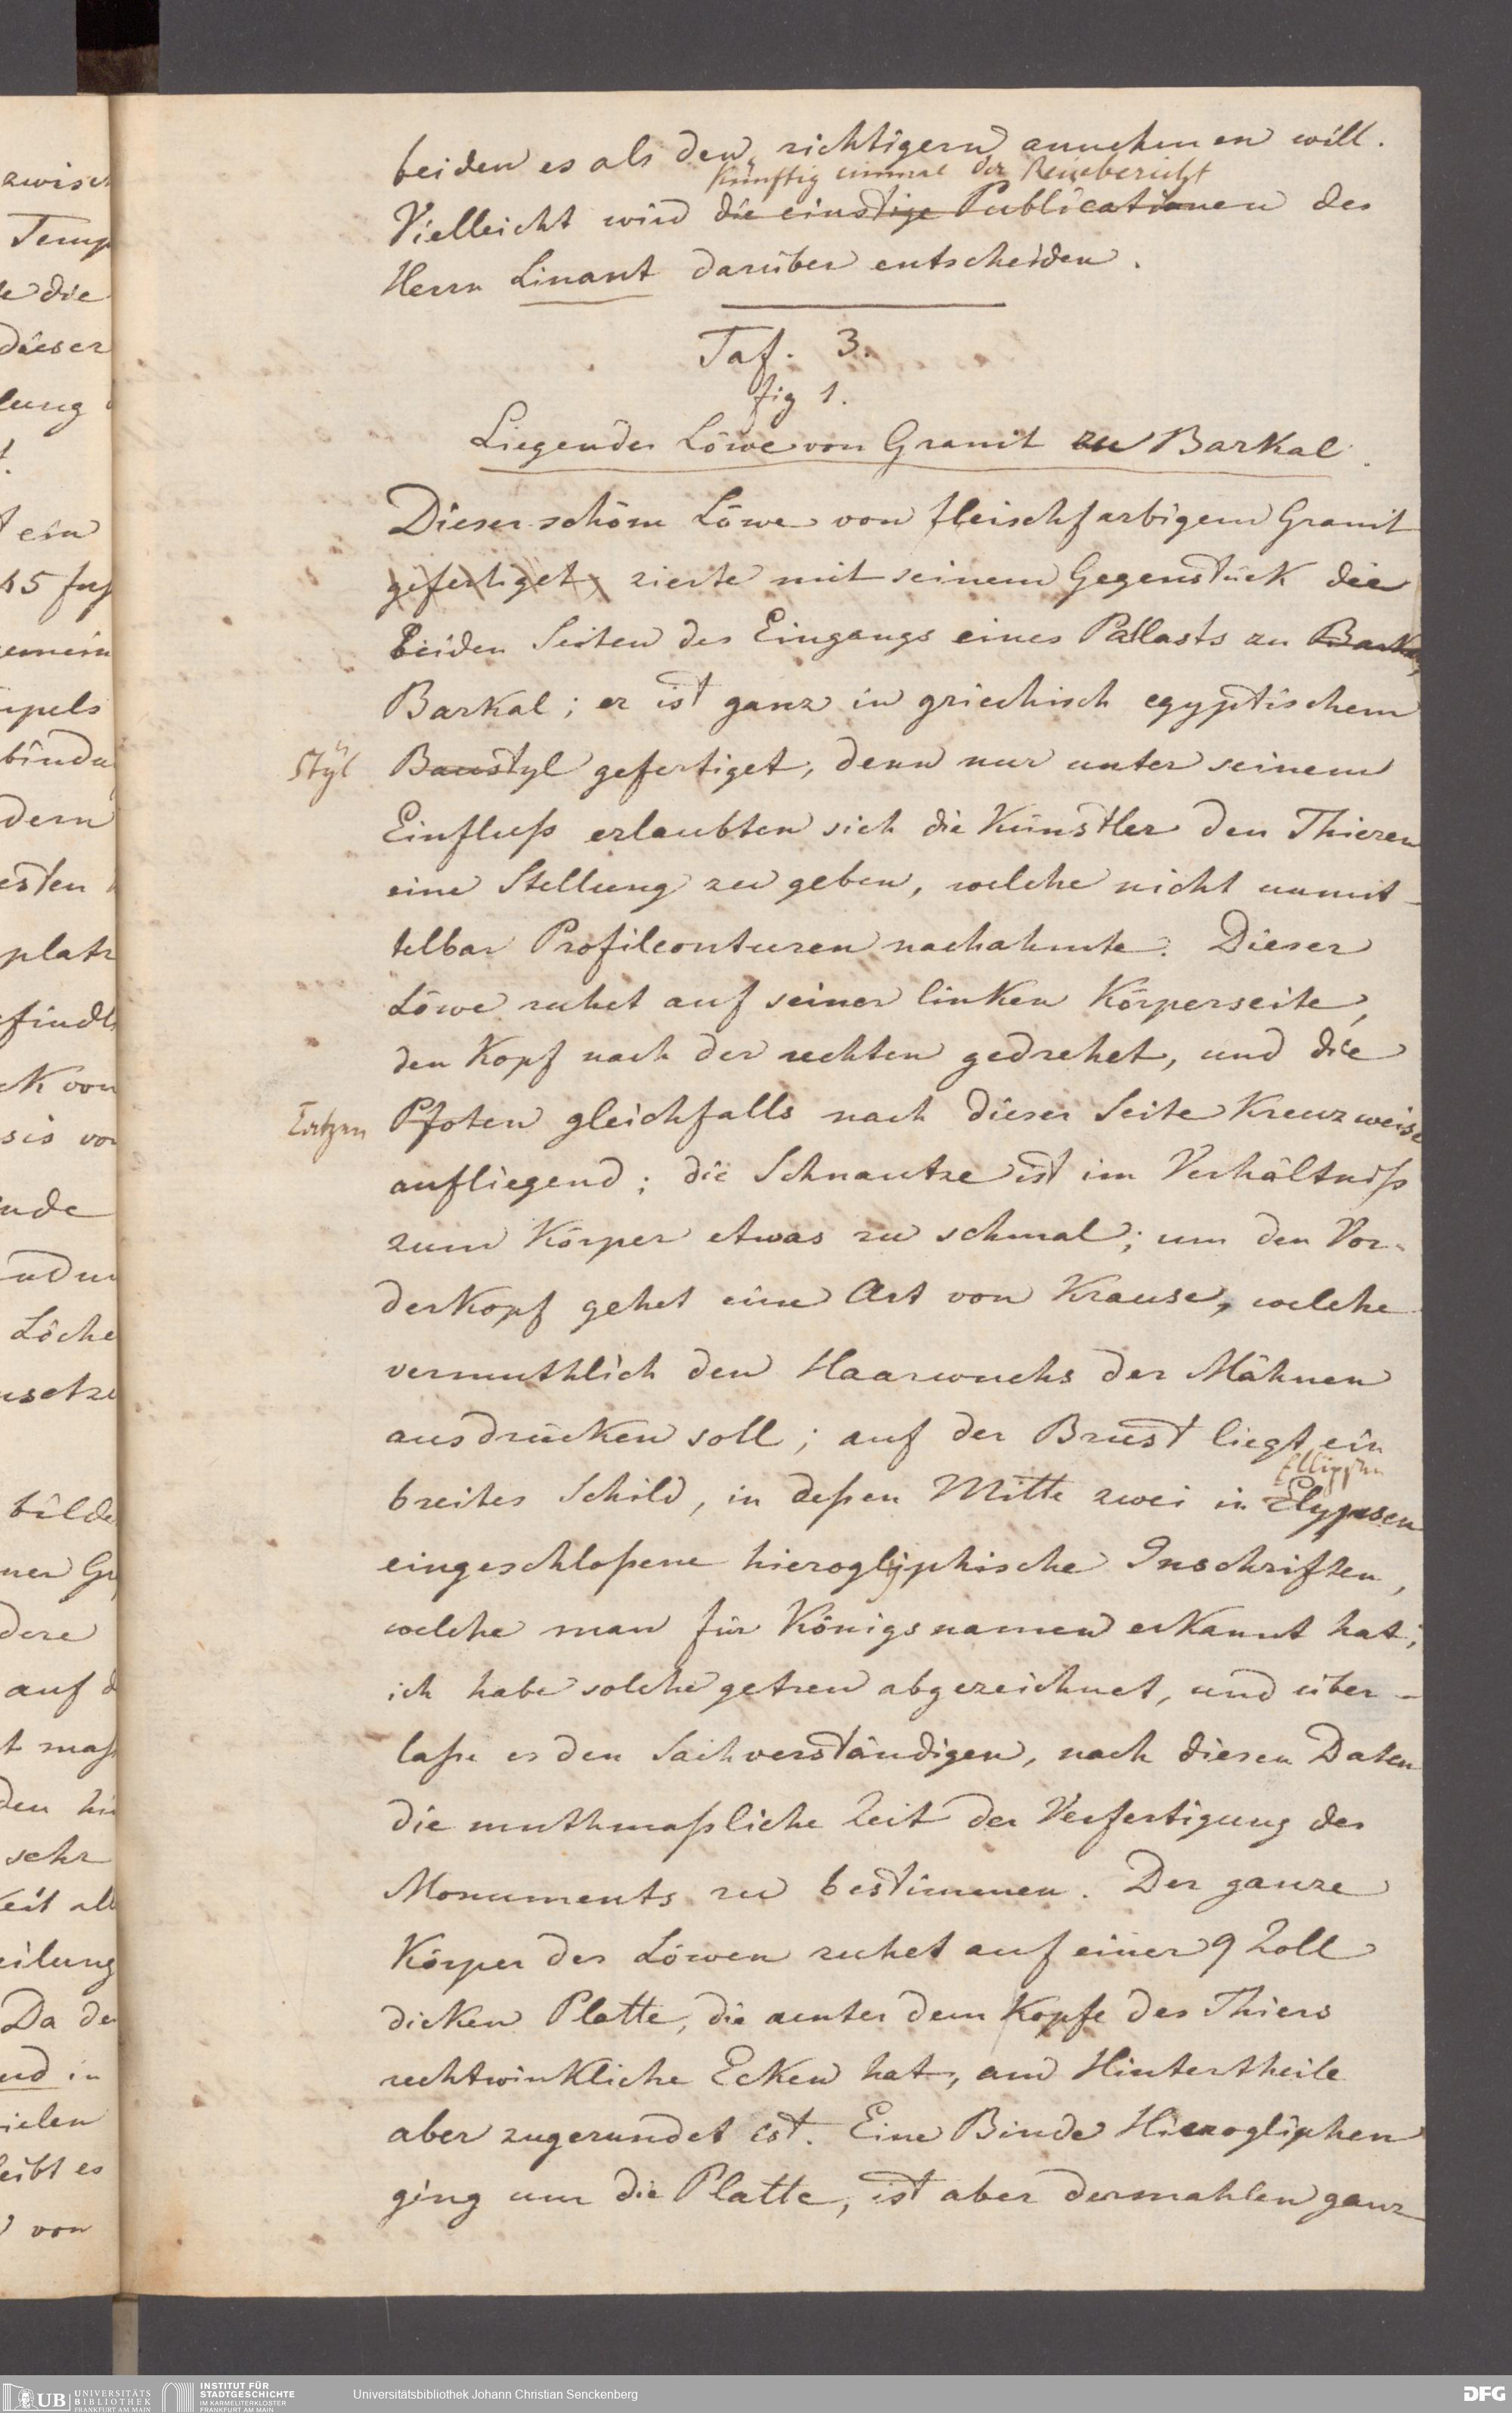 beiden es als den richtigern annehmen will.
künftig einmal der Reisebericht
Vielleicht wird die einstige Publicationen des
Herrn Linant darüber entscheiden.
Taf. 3.
fig 1.
Liegender Löwe von Granit zu Barkal.
Dieser schöne Löwe von fleischfarbigem Granit
gefertiget, zierte mit seinem Gegenstück die
beiden Seiten des Eingangs eines Pallasts zu Barka
Barkal; er ist ganz in griechisch egyptischem
Styl
Baustyl gefertiget, denn nur unter seinem
Einfluß erlaubten sich die Künstler den Thieren
eine Stellung zu geben, welche nicht unmit-
telbar Profilconturen nachahmte. Dieser
Löwe ruhet auf seiner linken Körperseite,
den Kopf nach der rechten gedrehet, und die
Tatzen
Pfoten gleichfalls nach dieser Seite Kreuzweise
aufliegend; die Schnautze ist im Verhältniß
zum Körper etwas zu schmal; um den Vor-
derkopf gehet eine Art von Krause, welche
vermuthlich den Haarwuchs der Mähnen
ausdrücken soll; auf der Brust liegt ein
Ellipsen
breites Schild, in deßen Mitte zwei in Elypsen
eingeschloßene hieroglyphische Inschriften,
welche man für Königsnamen erkannt hat;
ich habe solche getreu abgezeichnet, und über-
laße es den Sachverständigen, nach diesen Daten
die muthmaßliche Zeit der Verfertigung des
Monuments zu bestimmen. Der ganze
Körper des Löwen ruhet auf einer 9 Zoll
dicken Platte, die unter dem Kopfe des Thiers
rechtwinkliche Ecken hat, am Hintertheile
aber zugerundet ist. Eine Binde Hierogliphen
ging um die Platte, ist aber dermahlen ganz
zwisch
Temp
die
dieser
lung
ein
45 fuß
emein
mpels
dern
esten
platz
findl
ck von
sis vo
nde
Löche
nsetze
bilde
ner Gr
dere
auf d
t maß
den hi
sehr
keit all
eilung
Da de
nd in
vielen
leibt es
von
UB UNIVERSITÄTS BIBLIOTHEK FRANKFURT AM MAIN
INSTITUT FÜR STADTGESCHICHTE IM KARMELITERKLOSTER FRANKFURT AM MAIN
Universitätsbibliothek Johann Christian Senckenberg
DFG